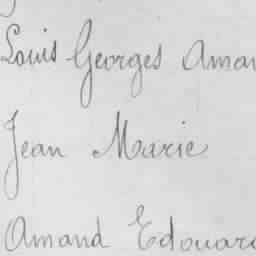 Louis Georges Aman
Jean Marie
Amand Edouard